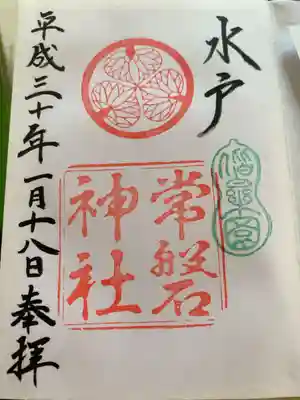 水戸
常磐
神社
平成三十年一月十八日奉拝